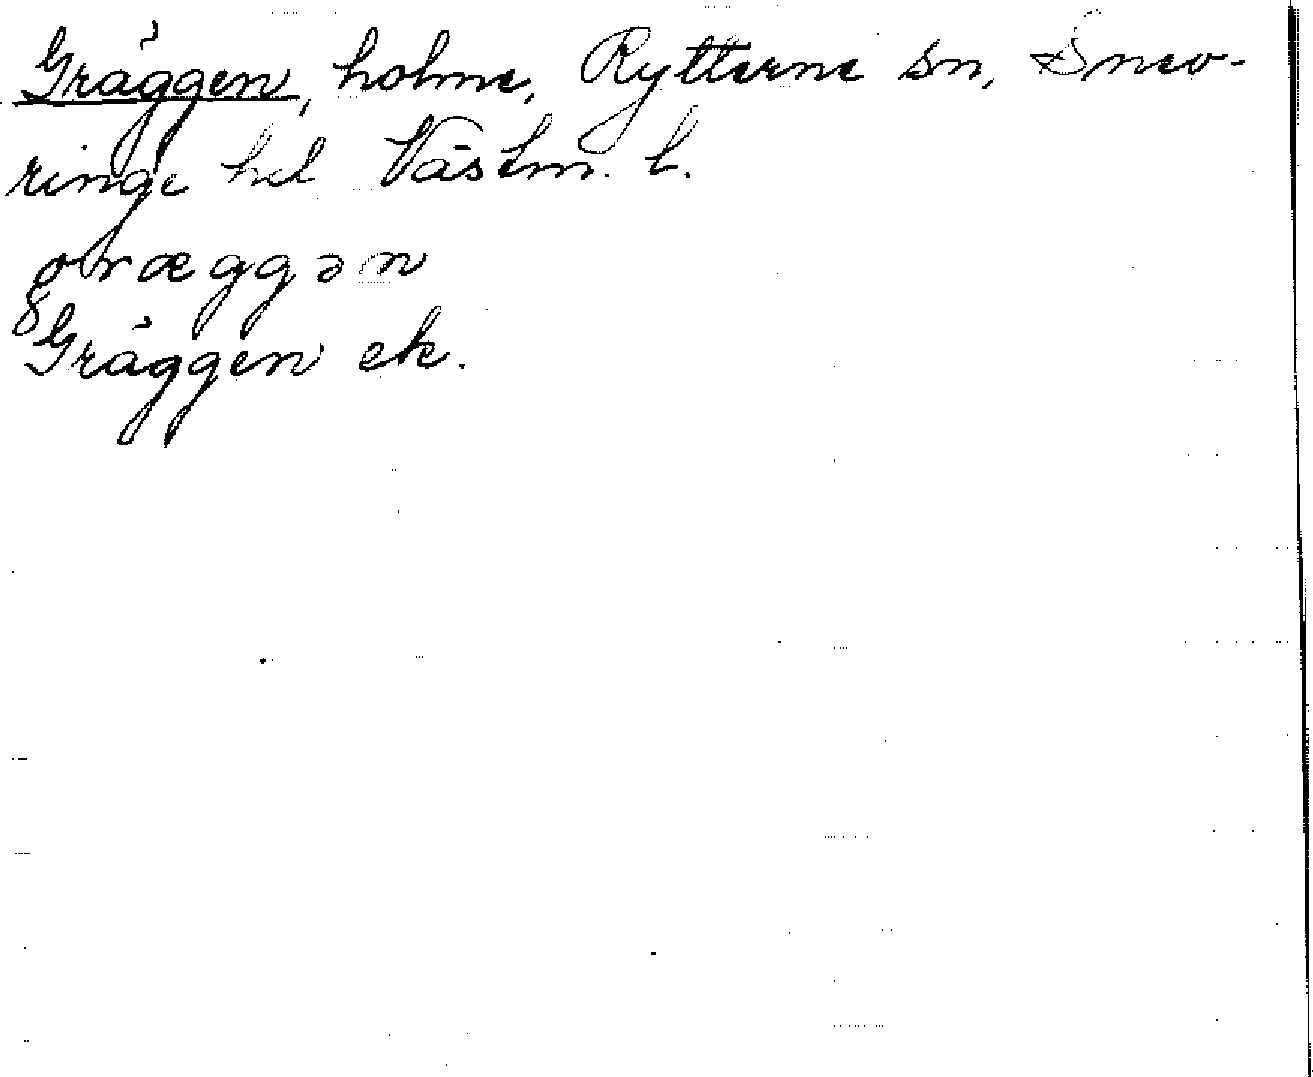 Gräggen, holme, Rytterne sn, Snev-
ringe hd Västm. l.
græggən
Gräggen ek.